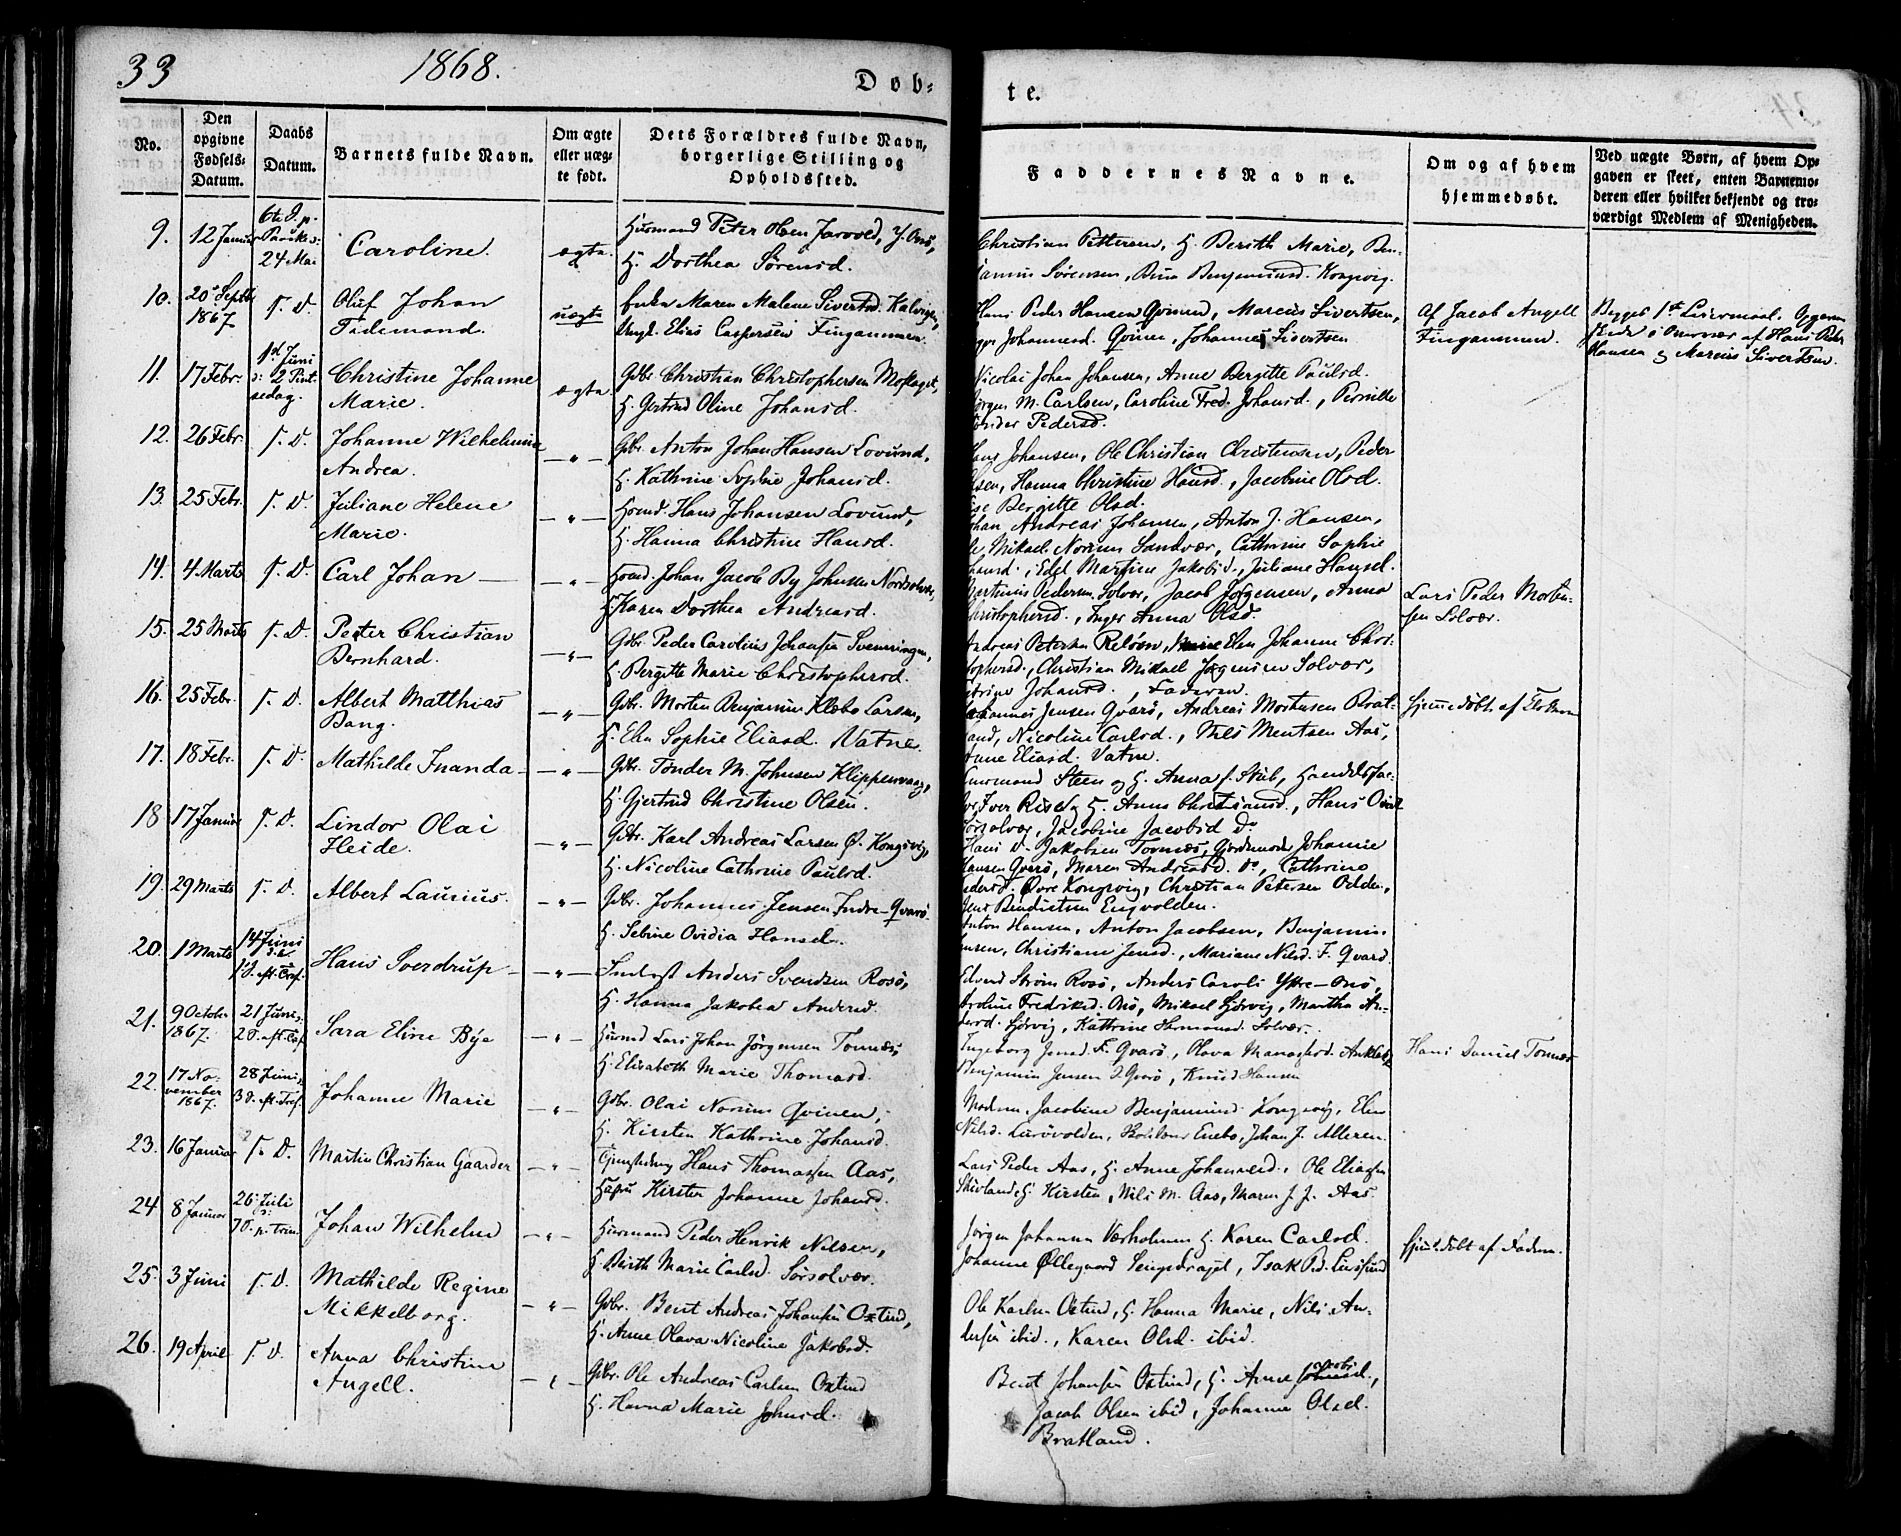 33
1868.
Døb-
te.
No.
Den opgivne Fødsels-Datum.
Daabs Datum.
Barnets fulde Navn.
Om ægte eller uæg-te født.
Dets Forældres fulde Navn, borgerlige Stilling og Opholdssted.
Faddernes Navne.
Om og af hvem hjemmedøbt.
Ved uægte Børn, af hvem Op-gaven er skeet, enten Barnemo-deren eller hvilket bekjendt og tro-værdigt Medlem af Menigheden.
9. 12 Januar 24 Mai Caroline. ægte.
Husmand Peter Olsen
H. Dorthea Sørensd.
Christian Pettersen, H. Berith Marie,
Sørensen, Benjaminsd. Kongsvig.
10. 20 Septb 1867 s. D. Oluf Johan
Tidemand. uægte
Maren Malene Sivertsd.
Ungk. Elias Caspersen Finganmmen
Hans Peder Hansen Qvinen, Marcus Sivertsen,
Johannesd. Qvinen, Johannes Sivertsen
Af Jacob Angell
Begges 1ste Leiermaal.
af Hans Peder
Hansen og Marcus Sivertsen.
11. 17 Febr. 1st Juni 2 Pint-sedag. Christine Johanne
Marie. ægte
Gdbr. Christian Christophersen Moflaget,
H. Gertrud Oline Johansd.
Nicolai Johan Johansen, Anne Bergitte Paulsd.
Jørgen M. Carlsen, Caroline Fred. Johansd., Pernille
Tønder Pedersd.
12. 26 Febr. s. D. Johanne Wilhelmine
Andrea. — " —
Gbr. Anton Johan Hansen Lovund,
H. Kathrine Sophie Johansd.
Hans Johansen, Ole Christian Christensen, Peder
Olsen, Hanna Christine Hansd., Jacobine Olsd.
Bergitte Olsd.
13. 25 Febr. s. D. Juliane Helene
Marie. — " —
Hmd. Hans Johansen Lovund,
H. Hanna Christine Hansd.
Johan Andreas Johansen, Anton J. Hansen,
Mikael Norum Sandvær, Cathrine Sophie
Johansd., Edel Martine Jakobsd., Juliane Hansd.
14. 4 Marts s. D. Carl Johan — — " —
Hmd. Johan Jacob By Johnsen Nordsolvær,
H. Karen Dorthea Andreasd.
Martinus Pedersen Solvær, Jacob Jørgensen, Anna
Christophersd., Inger Anna Olsd.
Lars Peder Morten-
sen Solvær.
15. 25 Marts s. D. Peter Christian
Bernhard. — " —
Gdbr. Peder Carolius Johansen Svenningen,
H. Bergitte Marie Christophersd.
Andreas Petersen Reløen, Elen Johanne Chri-
stophersd., Christian Mikael Jørgensen Solvær,
Johansd., Faderen.
16. 25 Febr. s. D. Albert Matthias
Bang. — " —
Gdbr. Morten Benjamin Klæbo Larsen,
H. Elen Sophie Eliasd. Vatne.
Johannes Jensen Qvarø, Andreas Mortensen Brat-
land, Nicoline Carlsd., Nils Mentsen Aas,
Anne Eliasd. Vatne.
Hjemmedøbt af
17. 18 Febr. s. D. Mathilde Inanda — " —
Gdbr. Tønder M. Johnsen Klippenvaag,
H. Gjertrud Christine Olsen.
Steen og H. Anna f. Stub, Handelsfac-
tor Iver Risøy H. Anne Christiansd., Hans
Sørsolvær, Jacobine Jacobsd Do
18 17 Januar s. D. Lindor Olai
Heide. — " —
Gdbr. Karl Andreas Larsen Ø. Kongsvig,
H. Nicoline Cathrine Paulsd.
Hans D. Jakobsen Tonnæs, Johanne
Hansen Qvarø, Maren Andreasd. Do, Cathrine
Pedersd. Øvre Kongsvig, Christian Petersen Odden,
Jens Benedictsen Engvolden.
19. 29 Marts s. D. Albert Laurius. — " —
Gdbr. Johannes Jensen Indre-Qvarø
H. Sebine Ovidia Hansd.
Anton Hansen, Anton Jacobsen, Benjamin
Jensen, Christiane Jensd., Mariane Nilsd. I. Qvarø.
20. 1 Marts 14 Juni Hans Sverdrup — — " —
Anders Svendsen Rosø,
H. Hanna Jakobea Andersd.
Edvard Strøm Rosø, Anders Caroli Ytre-Onø,
Caroline Fredriksd. Onø, Mikael Hjørvig, Martha An-
dersd. Hjørvig, Kathrine Hermansd. Solvær.
21. 9 October 1867. 21 Juni Sara Eline Bye — " —
Husmd Lars Johan Jørgensen Tonnæs,
H. Elisabeth Marie Thomasd.
Ingeborg Jensd. I. Qvarø, Olava Manassesd.
Benjamin Jensen I Qvarø, Knud Hansen
Hans Daniel Tonnæs
22. 17 November 1867. 28 Juni Johanne Marie — " —
Gdbr. Olai Norum Qvinen,
H. Kirsten Kathrine Johansd.
Jacobine Benjaminsd. Kongsvig, Elen
Nilsd. Lurøvolden, Enebo, Johan J. Alteren.
23. 16 Januar s. D. Martin Christian Gaarder — " —
Hans Thomassen Aas,
Kirsten Johanne Johansd.
Lars Peder Aas, H. Anne Johannesd., Ole Eliassen
H. Kirsten, Nils M. Aas, Maren J. J. Aas.
24 8 Januar 26 Juli Johan Wilhelm — " —
Husmand Peder Henrik Nilsen,
H. Berith Marie Carlsd. Sørsolvær.
Jørgen Johannsen Værholmen H. Karen Carlsd.
Johanne Øllegaard Isak Pd.
Hjmd.døbt af Faderen.
25. 3 Juni s. D. Mathilde Regine
Mikkelborg. — " —
Gdbr. Bent Andreas Johansen Oxtind,
H. Anne Olava Nicoline Jakobsd.
Ole Karlsen Oxtind, H. Hanna Marie, Nils An-
dersen ibid., Karen Olsd. ibid.
26. 19 April s. D. Anna Christine
Angell. — " —
Gdbr. Ole Andreas Carlsen Oxtind
H. Hanna Marie Johnsd.
Bent Johansen Oxtind, H. Anne Jacobs.,
Jacob Olsen ibid, Johanne Olsd.
Bratland.